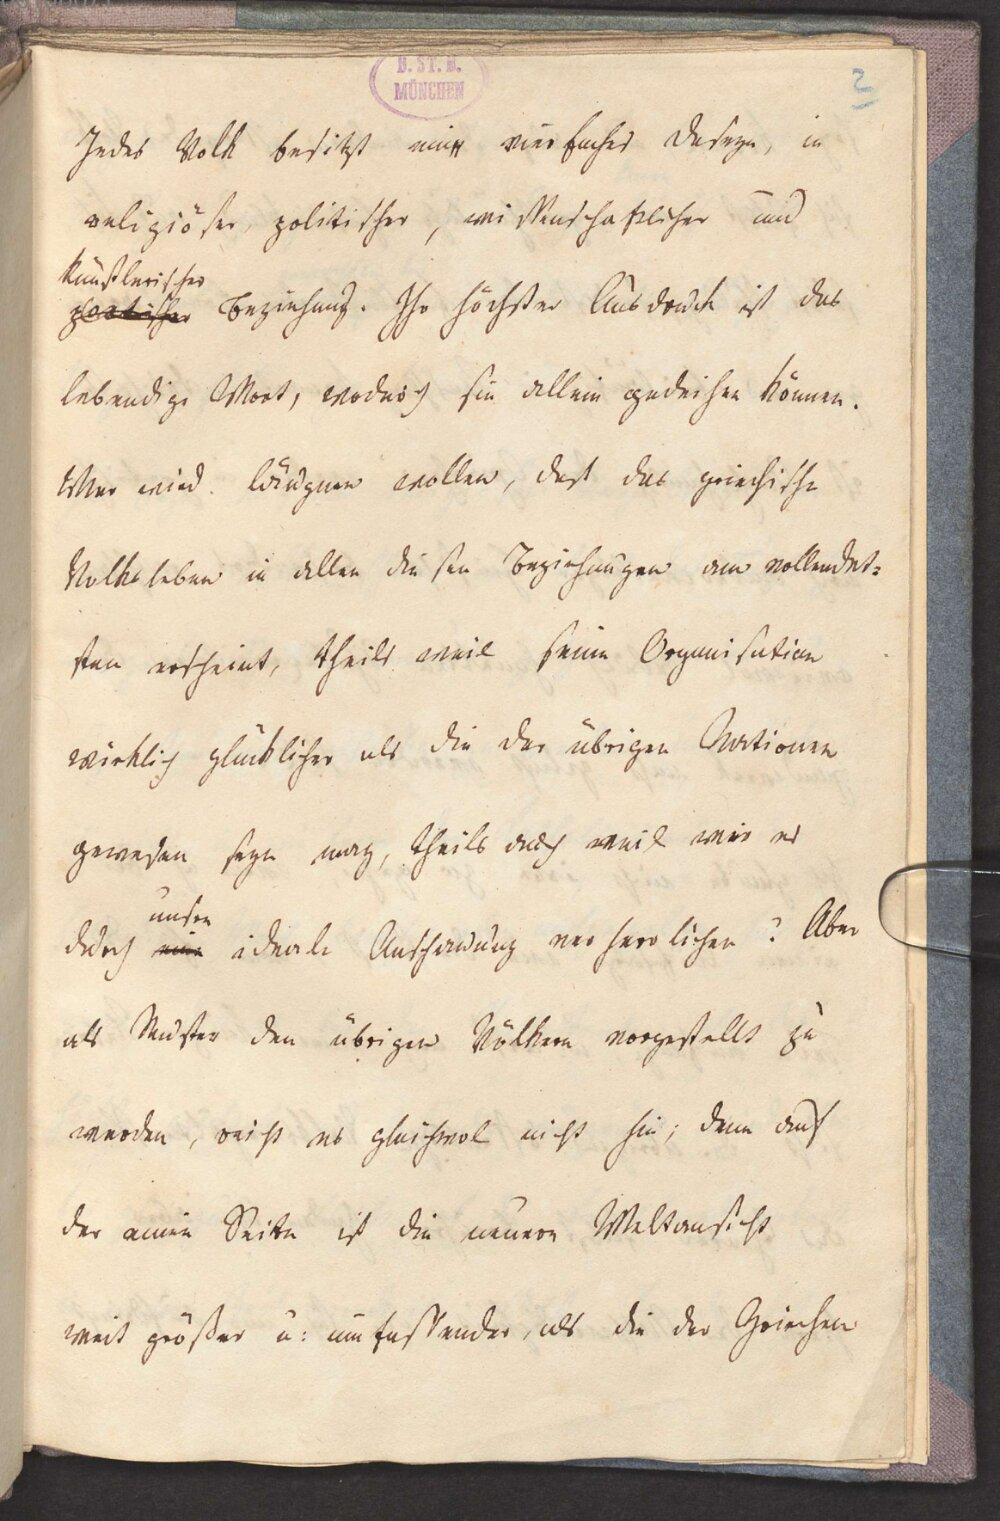 B. ST. B.
MÜNCHEN
2
Jedes Volk besitzt ein vierfaches Daseyn, in
religiöser, politischer, wissenschaftlicher und
künstlerischer
poetischer Beziehung. Ihr höchster Ausdruck ist das
lebendige Wort, wodurch sie allein gedeihen können.
Wer wird läugnen wollen, dass das griechische
Volksleben in allen diesen Beziehungen am vollendet=
sten erscheint, theils weil seine Organisation
wirklich glücklicher als die der übrigen Nationen
gewesen seyn mag, theils auch weil wir es
unsre
durch eine ideale Anschauung verherrlichen? Aber
als Muster den übrigen Völkern vorgestellt zu
werden, reicht es gleichwol nicht hin; denn auf
der einen Seite ist die neuere Weltansicht
weit größer u: umfassender, als die der Griechen